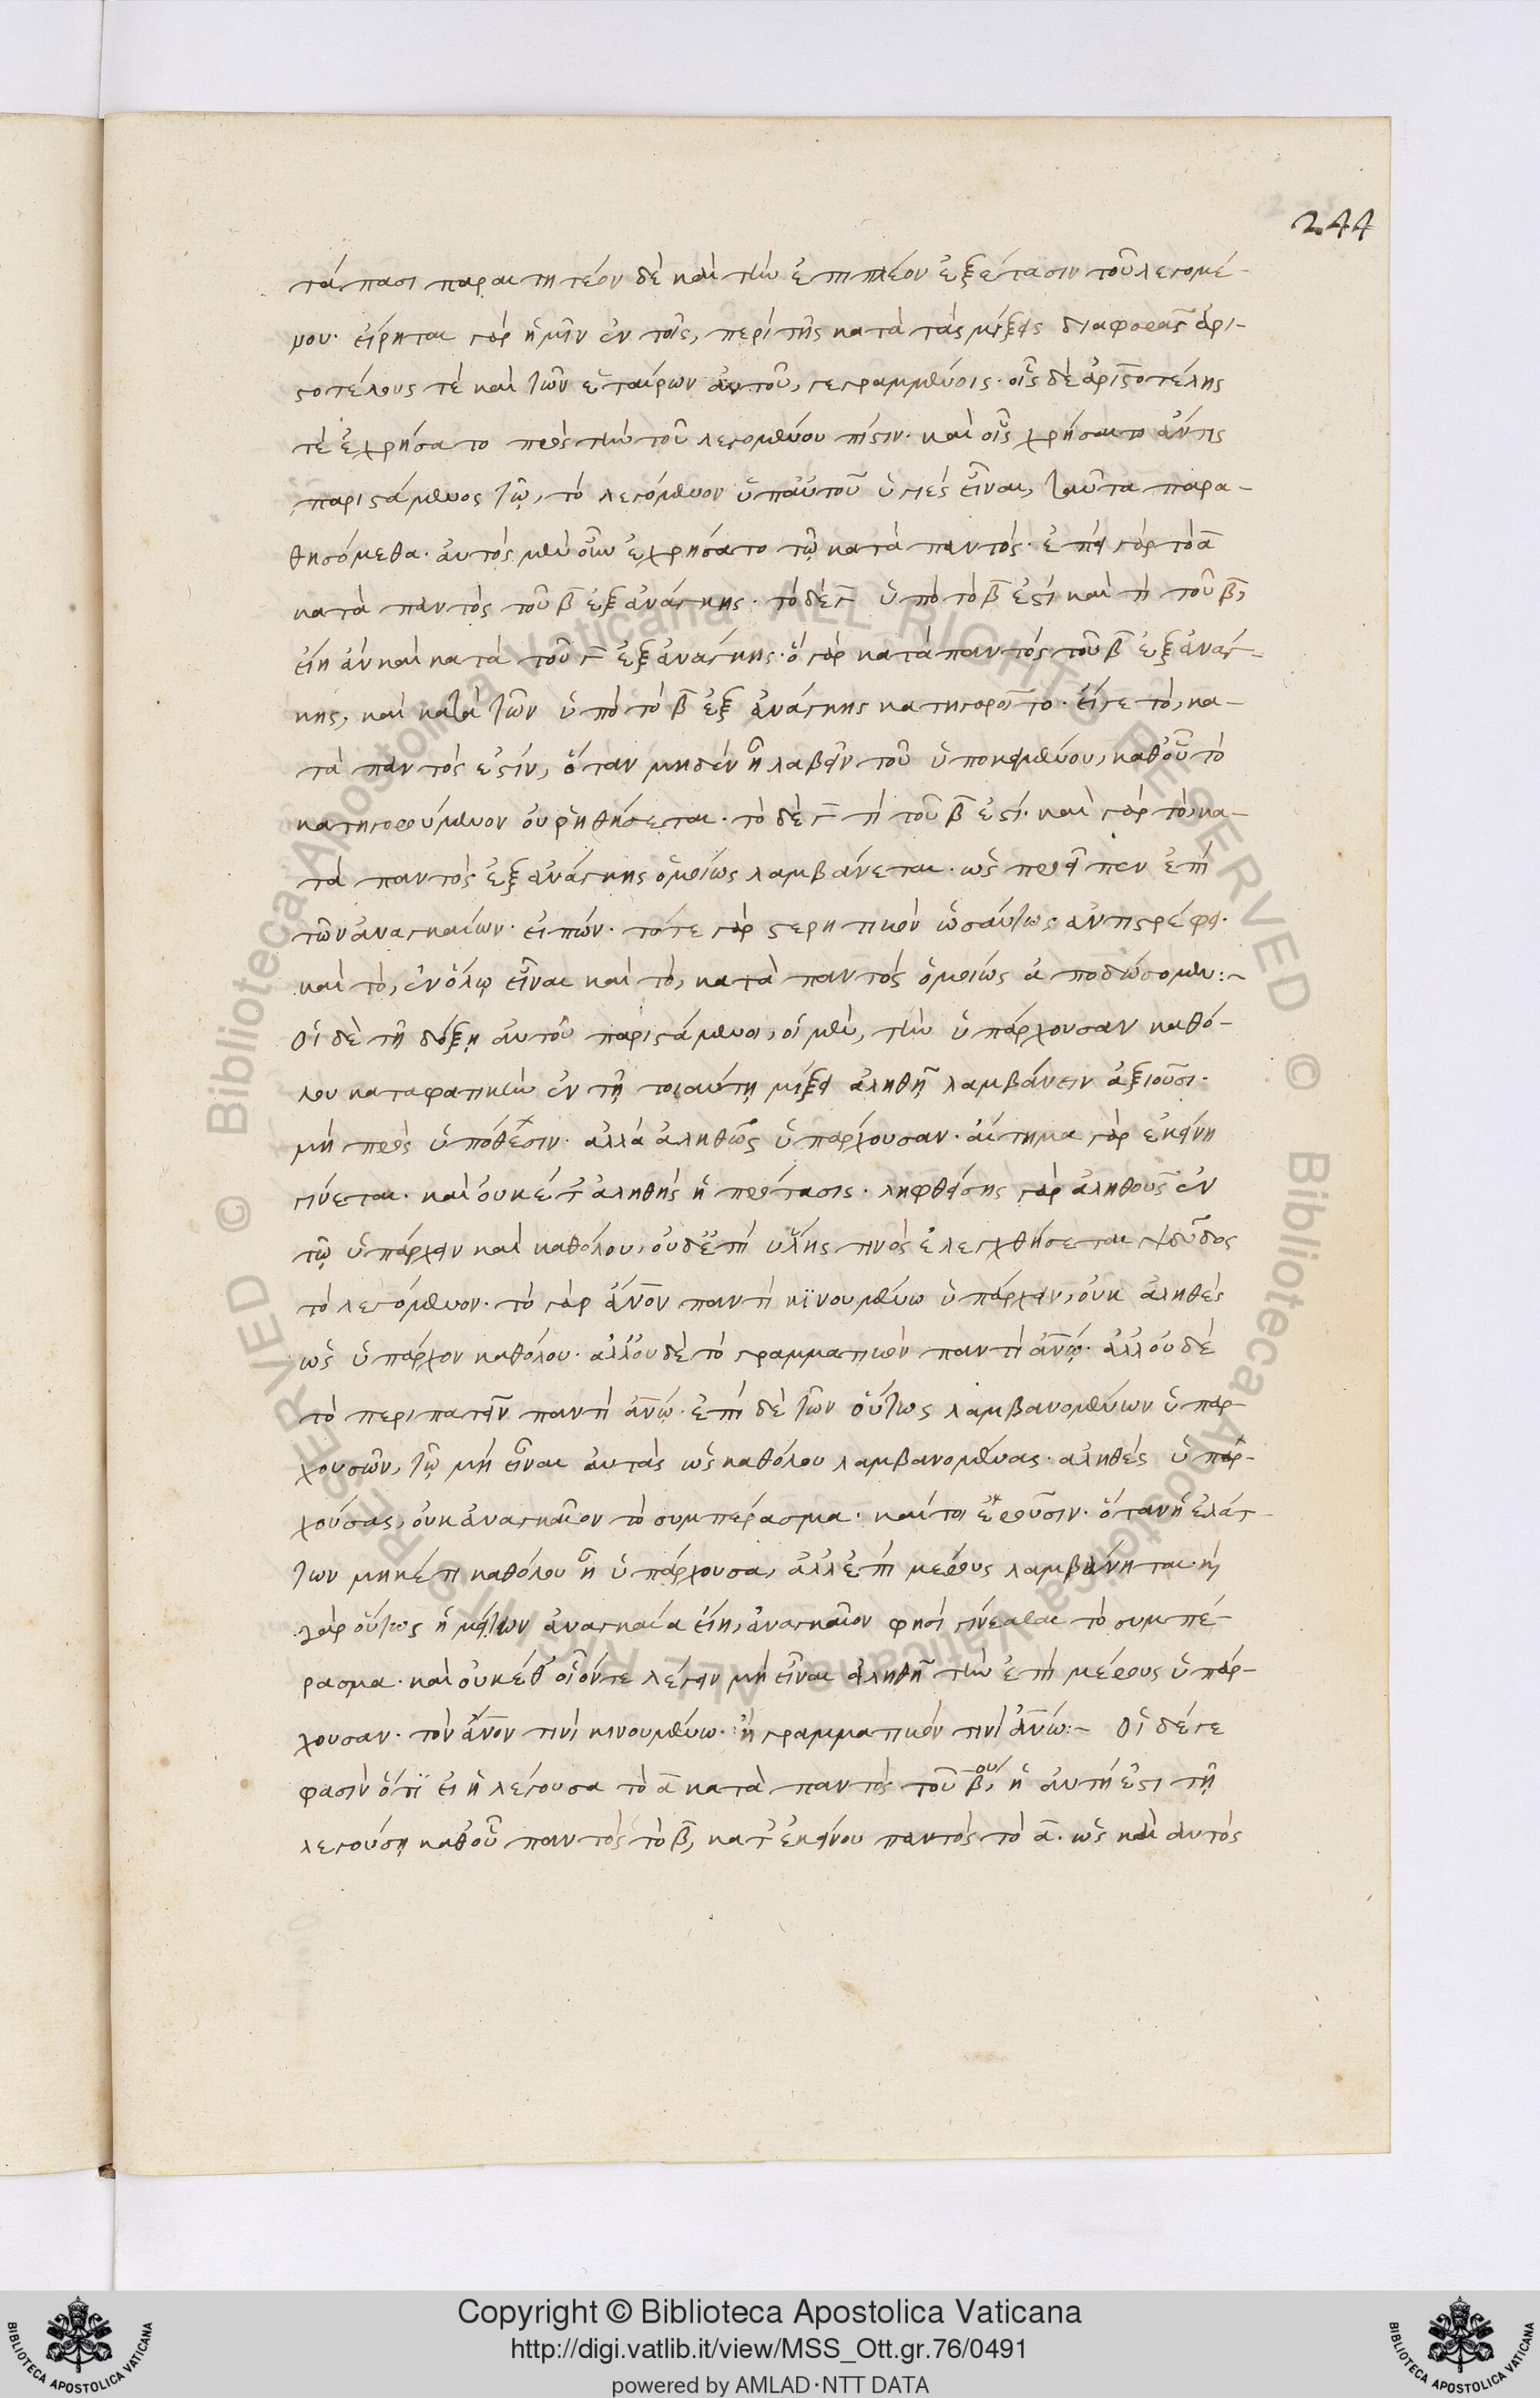 244
τάπασι παραιτητέον δὲ καὶ τὴν ἐπιπλέον ἐξέτασιν τοῦ λεγομέ-
νου· εἴρηται γὰρ ἡμῖν ἐν τοῖς, περὶ τῆς κατὰ τὰς μίξεις διαφορᾶς ἀρι-
στοτέλους τὲ καὶ τῶν ἑταίρων αὐτοῦ, γεγραμμένοις· οἷς δὲ ἀριστοτέλης
τὲ ἐχρήσατο πρὸς τὴν τοῦ λεγομένου πίστιν· καὶ οἷς χρήσαιτο ἄντις
παριστάμενος τῶ, τὸ λεγόμενον ὑπ' αὐτοῦ ὑγιὲς εἶναι, ταῦτα παρα-
θησόμεθα· αὐτὸς μὲν οὖν ἐχρήσατο τῶ κατὰ παντός· ἐπεὶ γὰρ τὸ α
κατὰ παντὸς τοῦ β ἐξ ἀνάγκης· τὸ δὲ γ ὑπὸ τὸ β ἐστὶ καὶ τὶ τοῦ β,
εἴη ἂν καὶ κατὰ τοῦ γ ἐξ ἀνάγκης· ὃ γὰρ κατὰ παντὸς τοῦ β ἐξ ἀνάγ-
κης, καὶ κατὰ τῶν ὑπὸ τὸ β ἐξ ἀνάγκης κατηγοροῖτο· εἴγε τὸ, κα-
τὰ παντός ἐστιν, ὅταν μηδὲν ἦ λαβεῖν τοῦ ὑποκειμένου, καθ' οὗ τὸ
κατηγορούμενον οὐ ῥηθήσεται· τὸ δὲ γ τὶ τοῦ β ἐστί· καὶ γὰρ τὸ, κα-
τὰ παντὸς ἐξ ἀνάγκης ὁμοίως λαμβάνεται· ὡς προεῖπεν ἐπὶ
τῶν ἀναγκαίων· εἰπών· τό τε γὰρ στερητικὸν ὡσαύτως ἀντιστρέφει·
καὶ τὸ, ἐν ὅλῳ εἶναι καὶ τὸ, κατὰ παντός ὁμοίως ἀποδώσομεν:~
Οἱ δὲ τῇ δόξῃ αὐτοῦ παριστάμενοι, οἱ μὲν, τὴν ὑπάρχουσαν καθό-
λου καταφατικὴν ἐν τῇ τοιαύτῃ μίξει ἀληθῆ λαμβάνειν ἀξιοῦσι·
μὴ πρὸς ὑπόθεσιν· ἀλλὰ ἀληθῶς ὑπάρχουσαν· αἴτημα γὰρ ἐκείνη
γίνεται· καὶ οὐκέτ' ἀληθὴς ἡ πρότασις· ληφθείσης γὰρ ἀληθοῦς ἐν
τῶ ὑπάρχειν καὶ καθόλου, οὐδ' ἐπὶ ὕλης τινὸς ἐλεγχθήσεται ψεῦδος
τὸ λεγόμενον· τὸ γὰρ ἄνον παντὶ κϊνουμένω ὑπάρχειν, οὐκ ἀληθὲς
ὡς ὑπάρχον καθόλου· ἀλλ' οὐδὲ τὸ γραμματικὸν παντὶ ἀνῳ· ἀλλ' οὐδὲ
τὸ περιπατεῖν παντὶ ἀνῳ· ἐπὶ δὲ τῶν οὕτως λαμβανομένων ὑπαρ-
χουσῶν, τῶ μὴ εἶναι αὐτὰς ὡς καθόλου λαμβανομένας· ἀληθὲς ὑπαρ-
χούσας, οὐκ ἀναγκαῖον τὸ συμπέρασμα· καίτοι ἐροῦσιν· ὅταν ἡ ἐλάτ-
των μηκέτι καθόλου ἦ ὑπάρχουσα, ἀλλ' ἐπὶ μέρους λαμβάνηται· ἡ
γὰρ οὕτως ἡ μείζων ἀναγκαία εἴη, ἀναγκαῖον φησὶ γίνεσθαι τὸ συμπέ-
ρασμα· καὶ οὐκέθ' οἷόντε λέγειν μὴ εἶναι ἀληθῆ τὴν ἐπὶ μέρους ὑπάρ-
χουσαν· τὸν ἄνον τινὶ κινουμένω· ἢ γραμματικὸν τινὶ ἀνω:~ Οἱ δέ γε
φασὶν ὅτϊ εἰ ἡ λέγουσα τὸ α κατὰ παντὸς τοῦ β, ἡ αὐτή ἐστι τῇ
λεγούσῃ καθ' οὗ παντὸς τὸ β, κατ' ἐκείνου παντὸς τὸ α· ὡς καὶ αὐτὸς
Copyright © Biblioteca Apostolica Vaticana
http://digi.vatlib.it/view/MSS_Ott.gr.76/0491
powered by AMLAD·NTT DATA